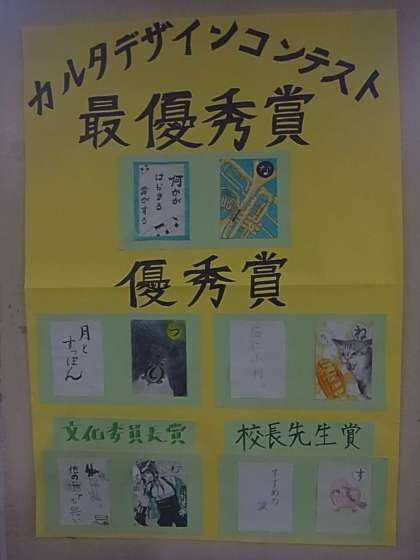 カルタデザインコンテスト
最優秀賞
何かが
はじまる
音がする
な
優秀賞
月と
すっぽん
つ
猫に小判。
ね
文化委員長賞
校長先生賞
すずめの
涙
す